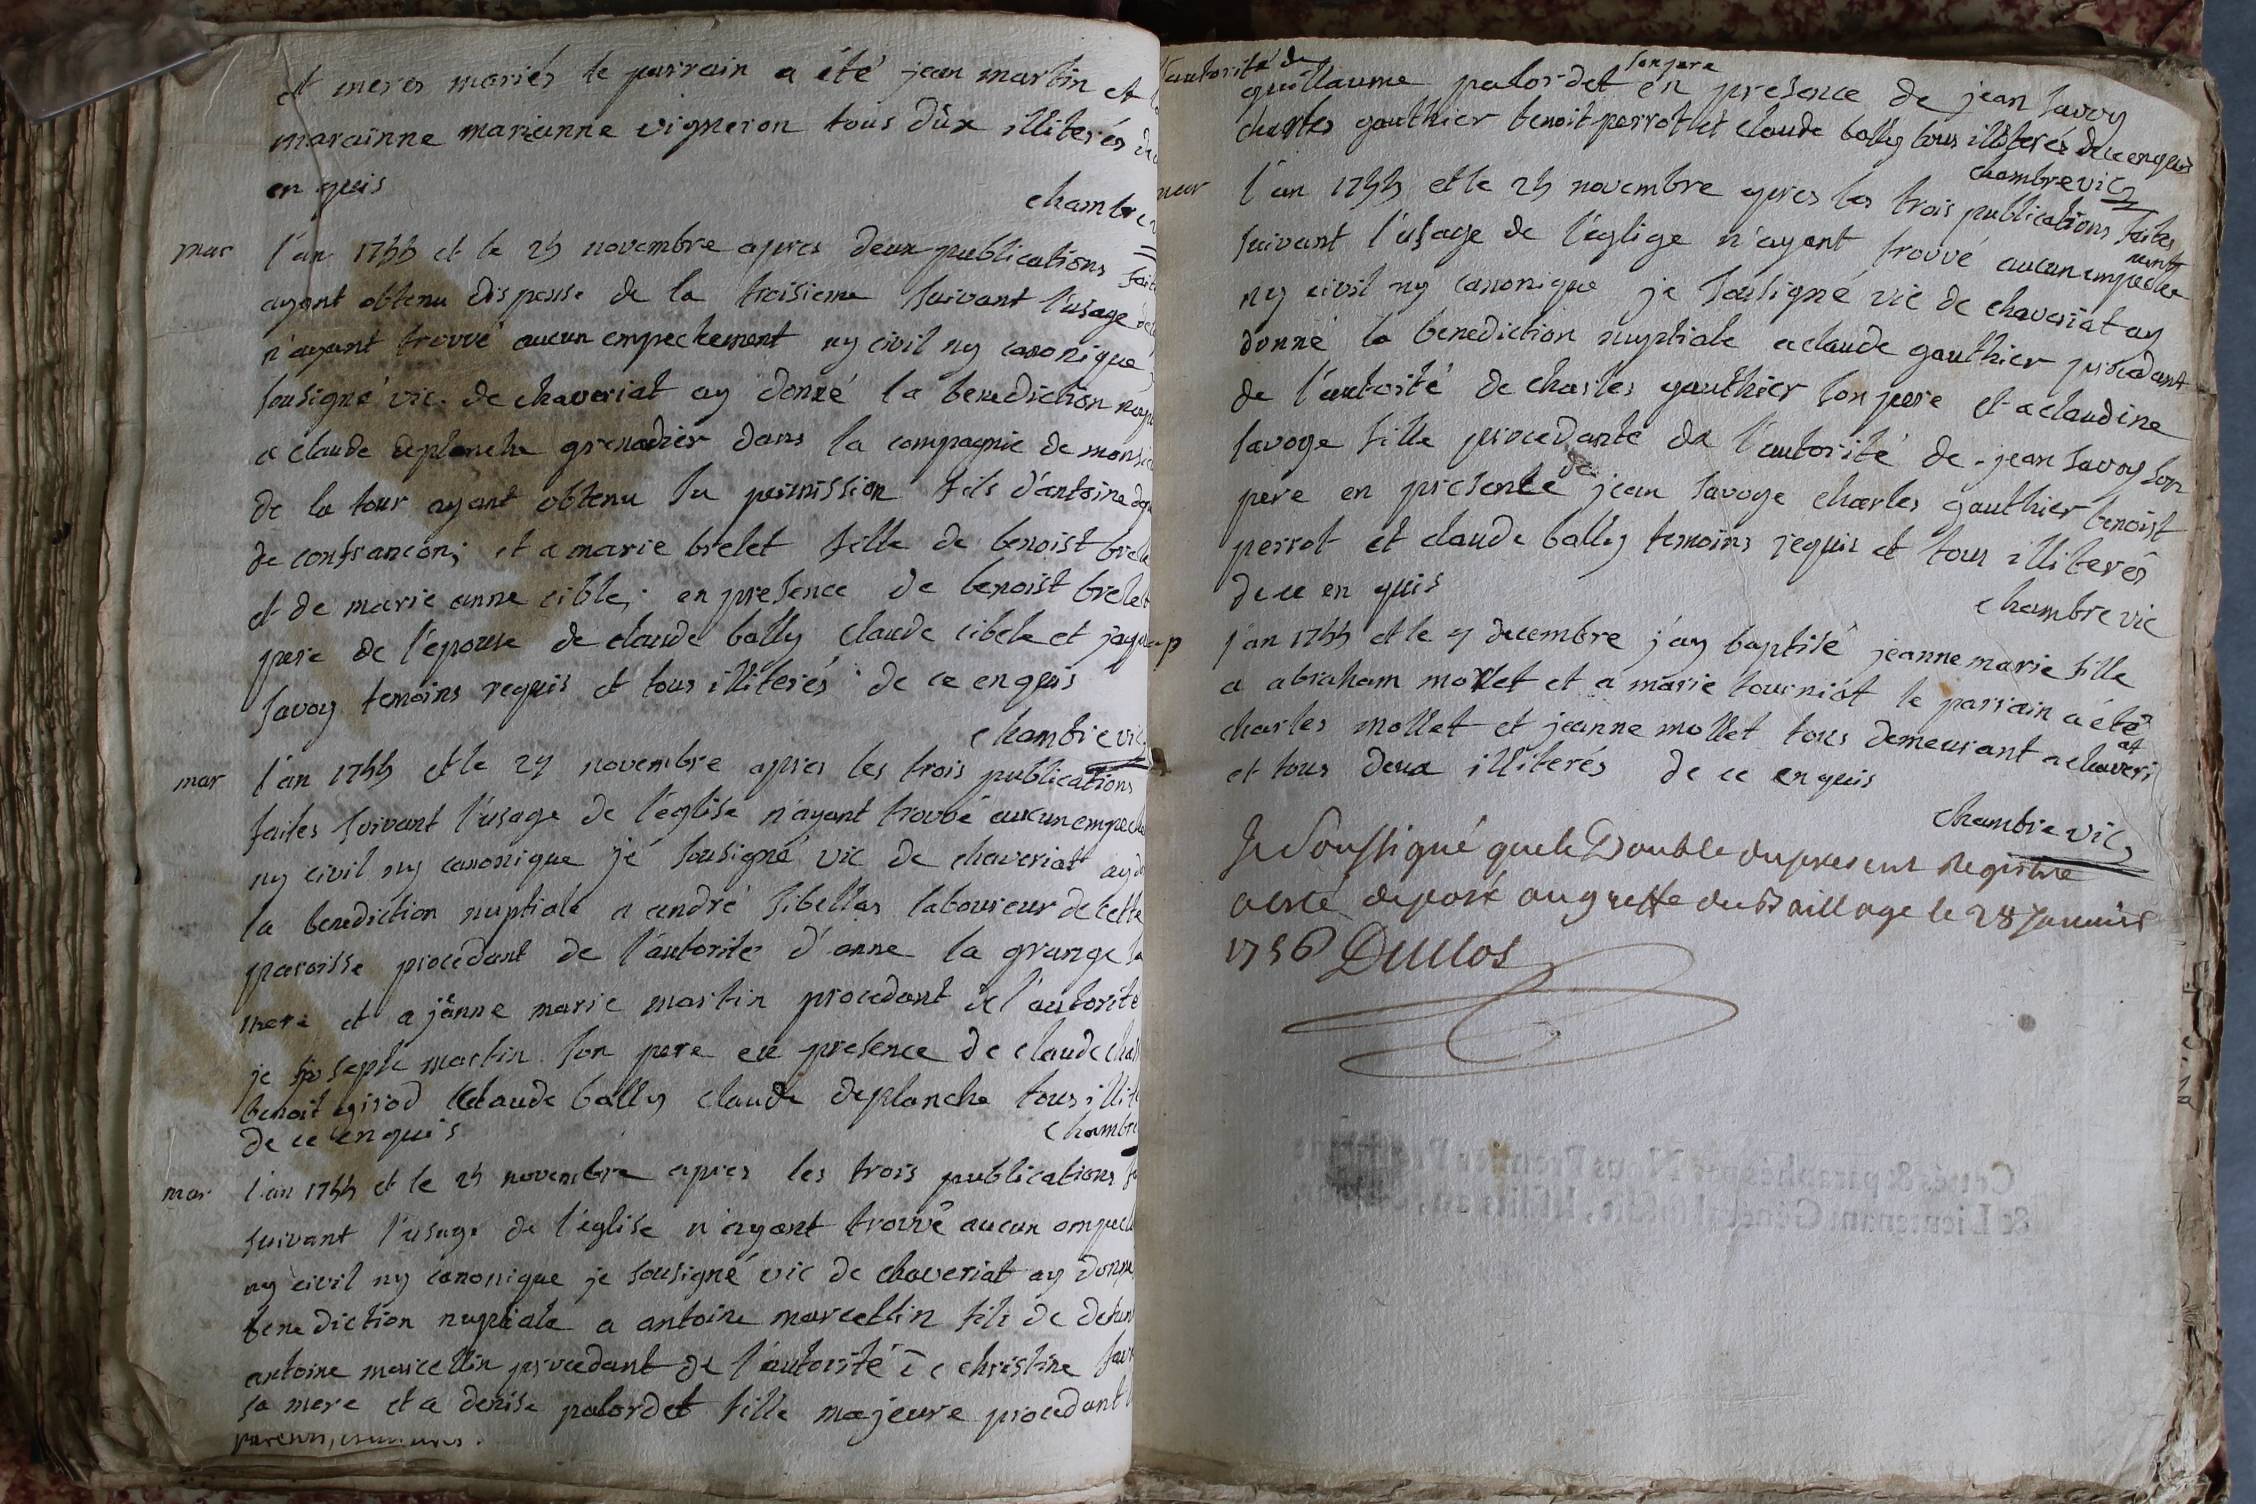 et meres mariés le parrain a été jean martin et la
marainne marianne vigneron tous dux illiterés de ce
en quis
chambre v
mar l'an 1755 et le 25 novembre apres deux publications fait
ayant obtenu dispense de la troisieme suivant l'usage de
n'ayant trouvé aucun empechement ny civil ny canonique
sousigné vic. de chaveriat ay donné la benediction nup
a claude deplanche grenadier dans la compagnie de monsie
de la tour ayant obtenu sa permission fils d'antoine dep
de confrancon; et a marie brelet fille de benoist brele
et de marie anne cible; en presence de benoist brelet
pere de l'epouse de claude bally claude cibele et jaqu
savoy temoins requis et tous illiterés de ce enquis
chambre vic
mar l'an 1755 et le 27 novembre apres les trois publications
faites suivant l'usage de l'eglise n'ayant trouvé aucun empeche
ny civil ny canonique je sousigné vic de chaveriat ay d
la benediction nuptiale a andré sibellas laboureur de cette
paroisse procedant de l'autorité d'anne la grange sa
mere et a jeanne marie martin procedant de l'autorité
je joseph martin son pere en presence de claude cha
benoit girod claude bally claude deplanche tous illite
de ce enquis chambre
mar l'an 1755 et le 25 novembre apres les trois publications f
suivant l'usage de l'eglise n'ayant trouvé aucun empeche
ny civil ny canonique je sousigné vic de chaveriat ay donné
benediction nuptiale a antoine marcellin fils de defunt
antoine marcellin procedant de l'autorité de christine sav
sa mere et a denise palordet fille majeure procedant
l'autorité de
guillaume palordet son pere en presence de jean savoy
charles gauthier benoit perrot et claude bally tous illiterés de ce enquis
chambre vic
mar l'an 1755 et le 25 novembre apres les trois publications faites
suivant l'usage de l'eglige n'ayant trouvé aucun empeche ment
ny civil ny canonique je sousigné vic de chaveriat ay
donné la benediction nuptiale a claude gauthier procedant
de l'autorité de charles gauthier son pere et a claudine
savoye fille procedante de l'autorité de jean savoy son
pere en presence de jean savoye charles gauthier benoist
perrot et claude bally temoins requis et tous illiterés
de ce en quis
chambre vic
l'an 1755 et le 7 decembre j'ay baptisé jeanne marie fille
a abraham mollet et a marie tourniot le parrain a été
charles mollet et jeanne mollet tous demeurant a chaveri at
et tous deux illiterés de ce enquis
chambre vic
Je Soussigné que le Double du present Registre
a esté deposé au greffe du Baillage le 28 Janvier
1756 Duclos
Cottés & paraphés par Nous Premier
& Lieutenant Général